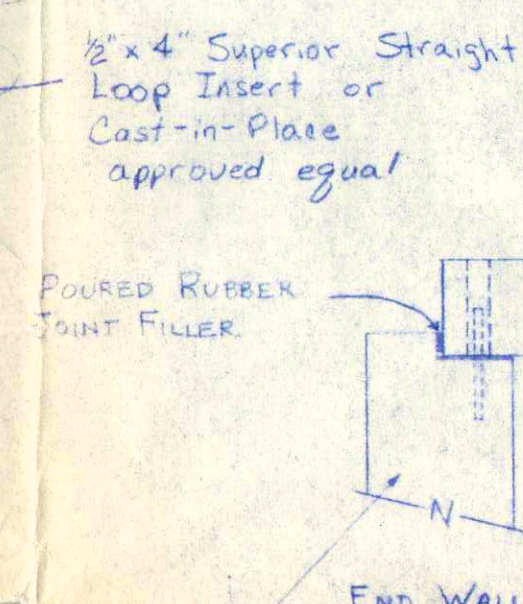 ½" x 4" Superior Straight
Loop Insert or
Cast-in-Place
approved equal
POURED RUBBER
JOINT FILLER.
N
END WALL